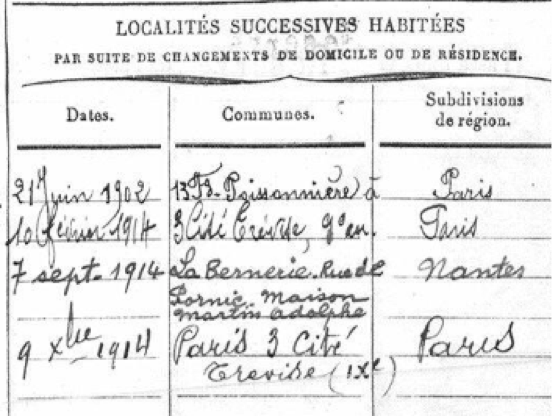 LOCALITÉS SUCCESSIVES HABITÉES
PAR SUITE DE CHANGEMENTS DE DOMICILE OU DE RÉSIDENCE.
Dates. Communes. Subdivisions de région.
21 Juin 1902 13 Fg. Poissonnière à Paris
10 février 1914 3 Cité Trévise, 9e arr. Paris
7 sept. 1914 La Bernerie. Rue de Nantes
Pornic. Maison
martin adolphe
9 xbre 1914 Paris 3 Cité Paris
Trevise (IXe)